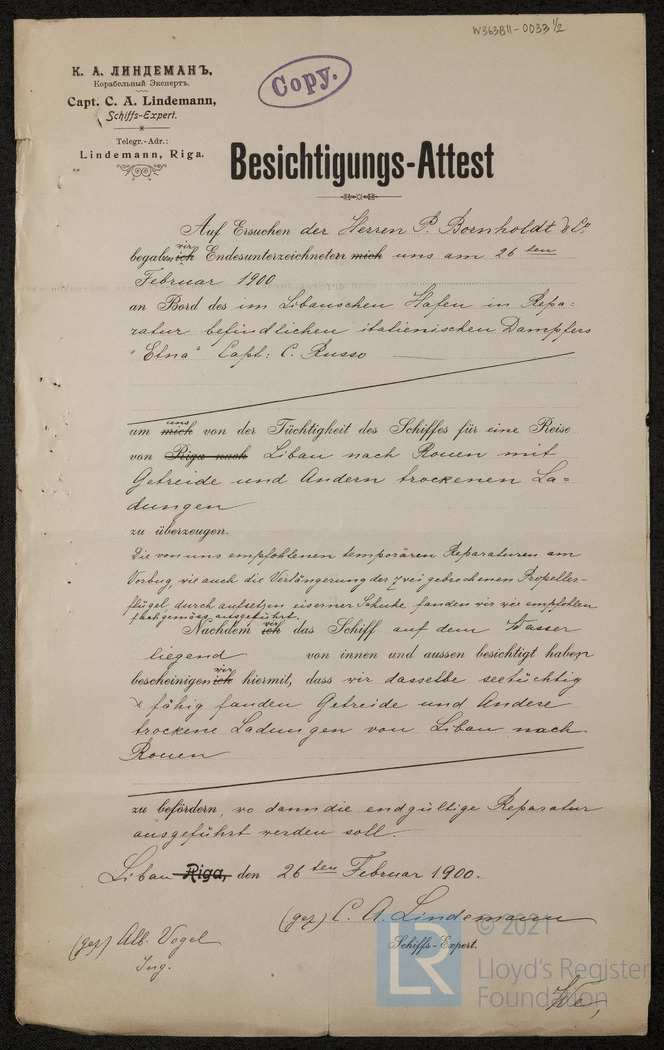 W363B11-0033 1/2
К. А. ЛИНДЕМАНЪ,
Корабельный Экспертъ.
Capt. C. A. Lindemann,
Schiffs-Expert.
Telegr.-Adr.:
Lindemann, Riga.
Copy.
Besichtigungs-Attest
Auf Ersuchen der Herren P. Bornholdt & Co
begaben wir ich Endesunterzeichneten mich uns am 26 ten
Februar 1900
an Bord des im Libauschen Hafen in Repa=
ratur befindlichen italienischen Dampfers
"Etna" Capt: C. Russo
um mich uns von der Tüchtigkeit des Schiffes für eine Reise
von Riga nach Libau nach Rouen mit
Getreide und Andern trockenen La=
dungen
zu überzeugen.
Die von uns empfohlenen temporären Reparaturen am
Vorbug, wie auch die Verlängerung der zwei gebrochenen Propeller-
flügel, durch aufsetzen eiserner Schuhe fanden wir wie empfohlen
fachgemäss ausgeführt.
Nachdem ich wir das Schiff auf dem Wasser
liegend von innen und aussen besichtigt haben
bescheinigen ich wir hiermit, dass wir dasselbe seetüchtig
& fähig fanden Getreide und Andere
trockene Ladungen von Libau nach
Rouen
zu befördern, wo dann die endgültige Reparatur
ausgeführt werden soll.
Libau Riga, den 26 ten Februar 1900.
(gez) C. A. Lindemann
(gez) Alb. Vogel
Schiffs-Expert.
Ing.
We,
© 2021
LR
Lloyd's Register
Foundation